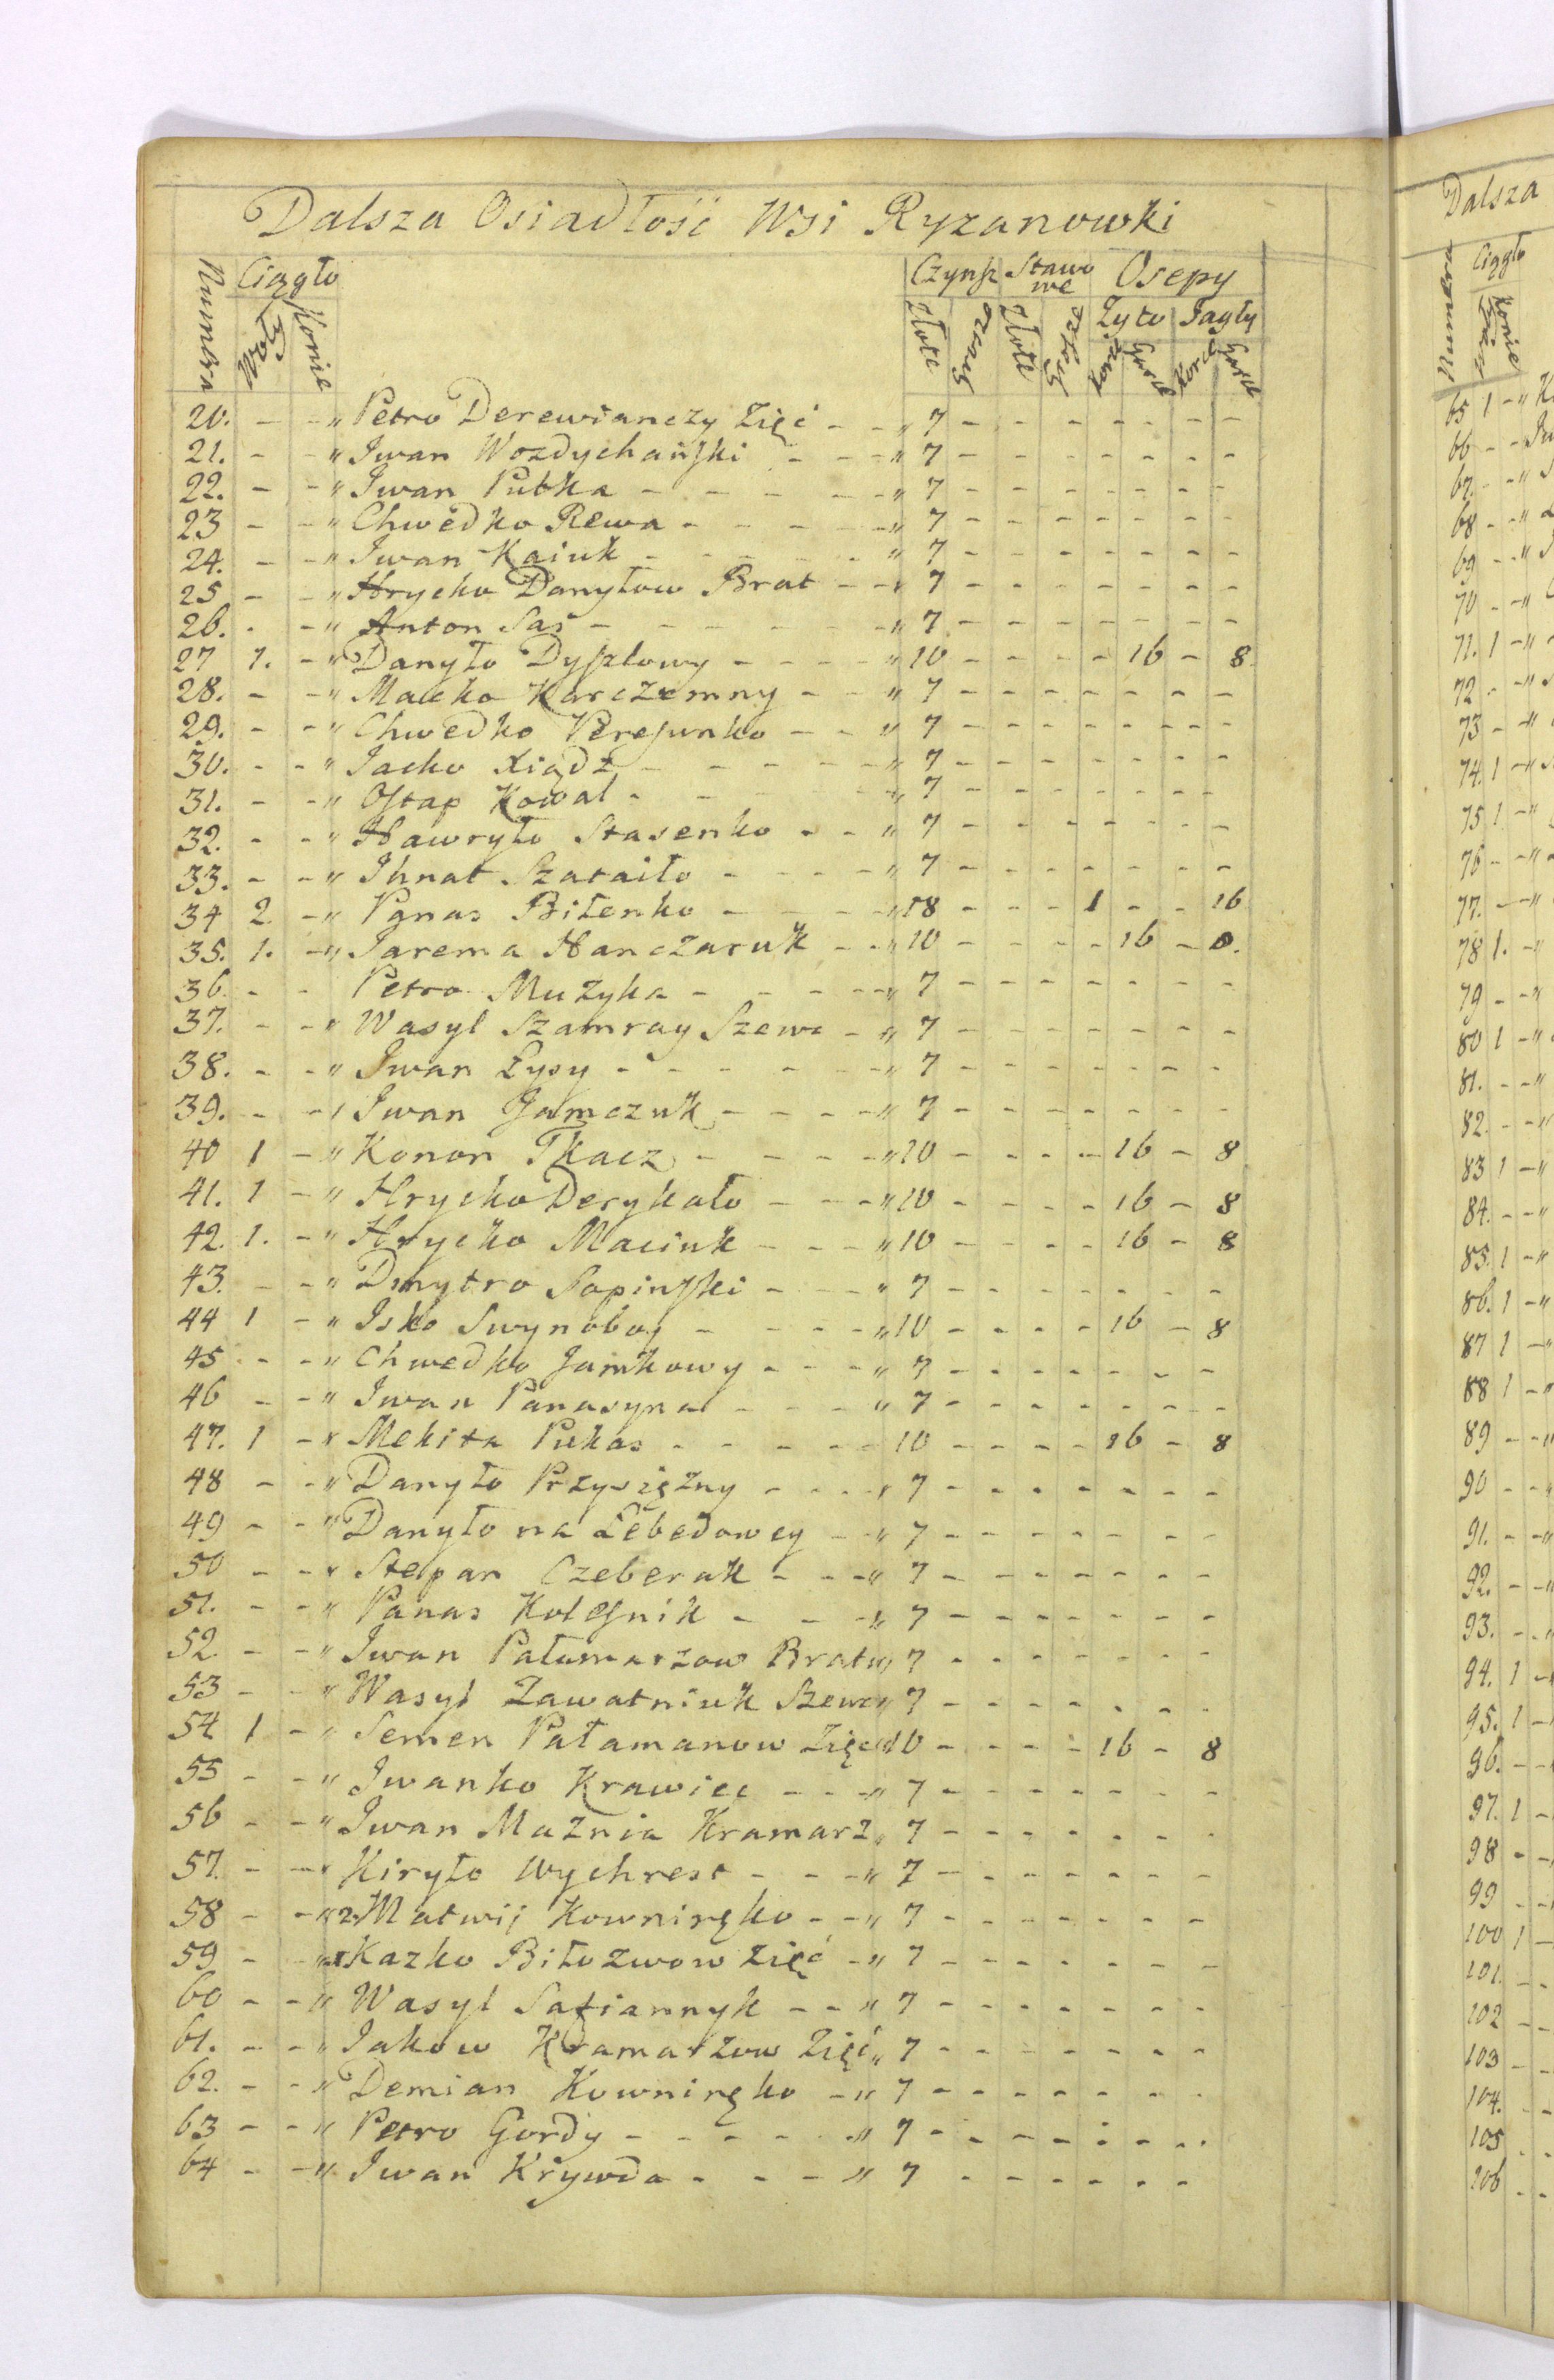 Dalsza Osiadłość Wsi Ryzanowki
Numera Ciągło Czynsz Stawowe Osepy
Konie Złote Grosze Złote Grosze Zyto Jagły
Korce Garce Korce Garce
20. - - " Petro Derewianczy Zięć - - " 7 - - - - - - -
21. - - " Iwan Wozdychańſki - - - " 7 - - - - - - -
22. - - " Iwan Putka - - - - - " 7 - - - - - - -
23 - - " Chwedko Rewa - - - - " 7 - - - - - - -
24. - - " Iwan Kaiuk - - - - - " 7 - - - - - - -
25 - - " Hrycko Danyłow Brat - - " 7 - - - - - - -
26. - - " Anton Sas - - - - - - " 7 - - - - - - -
27 1. - " Danyło Dyſzlowy - - - - " 10 - - - - 16 - 8
28. - - " Macko Karczemny - - " 7 - - - - - - -
29. - - " Chwedko Pereſunko - - " 7 - - - - - - -
30. - - " Jacko Xiądz - - - - - " 7 - - - - - - -
31. - - " Oſtap Kowal - - - - " 7 - - - - - - -
32. - - " Hawryło Stasenko - - " 7 - - - - - - -
33. - - " Ihnat Szataiło - - - - " 7 - - - - - - -
34 2. - " Panas Biłenko - - - - " 18 - - - 1 - - 16
35. 1. - " Jarema Hanczaruk - - " 10 - - - - 16 - 8.
36. - - Petro Muzyka - - - - - " 7 - - - - - - -
37. - - " Wasyl Szamray Szewc - " 7 - - - - - - -
38. - - " Iwan Łysy - - - - - - " 7 - - - - - - -
39. - - " Iwan Jamczuk - - - - " 7 - - - - - - -
40 1 - " Konon Tkacz - - - - " 10 - - - - 16 - 8
41. 1 - " Hrycko Derykało - - - " 10 - - - - 16 - 8
42. 1. - " Hrycko Maciuk - - - " 10 - - - - 16 - 8
43. - - " Dmytro Sopinſki - - - " 7 - - - - - - -
44 1 - " Isko Swynoboy - - - - " 10 - - - - 16 - 8
45 - - " Chwedko Jamkowy - - - " 7 - - - - - - -
46 - - " Iwan Panasyna - - - " 7 - - - - - - -
47. 1 - " Mekita Pukas - - - - - 10 - - - - 16 - 8
48 - - " Danyło Przysięzny - - - " 7 - - - - - - -
49 - - " Danyło na Łebedowey - " 7 - - - - - - -
50 - - " Stepan Czeberak - - - " 7 - - - - - - -
51. - - " Panas Koleſnik - - - " 7 - - - - - - -
52. - - " Iwan Pałamarzow Brat " 7 - - - - - - -
53 - - " Wasyl Zawatniuk Szewc " 7 - - - - - - -
54 1 - " Semen Pałamanow Zięć " 10 - - - - 16 - 8
55 - - " Iwanko Krawiec - - - " 7 - - - - - - -
56 - - " Iwan Maznia Kramarz " 7 - - - - - - -
57. - - " Kiryło Wychrest - - - " 7 - - - - - - -
58 - - " 2. Matwij Kowniręko - - " 7 - - - - - - -
59 - " Kazko Biłozwow Zięć - " 7 - - - - - - -
60 - - " Wasyl Safiannyk - - " 7 - - - - - - -
61. - - " Jakow Kramarzow Zięć " 7 - - - - - - -
62. - - " Demian Kowniręko - " 7 - - - - - - -
63 - - " Petro Gordy - - - - - " 7 - - - - - - -
64 - - " Iwan Krywda - - - " 7 - - - - - -
Dalsza
Numera Ciągło
Konie
65 1 - "
66 - -
67. - - "
68 - - "
69 - - "
70 - - "
71. 1 - "
72 - - "
73 - - "
74. 1 - "
75 1 - "
76 - - "
77. - - "
78 1. - "
79 - - "
80 1 - "
81. - - "
82. - - "
83 1 - "
84. - - "
85. 1 - "
86. 1 - "
87 1 - "
88 1 - "
89 - - "
90 - - "
91. - - "
92. - - "
93. - -
94. 1 -
95. 1 -
96. - -
97. 1 -
98 - -
99 - -
100 1 -
101. - -
102 - -
103 - -
104. - -
105 - -
106 - -